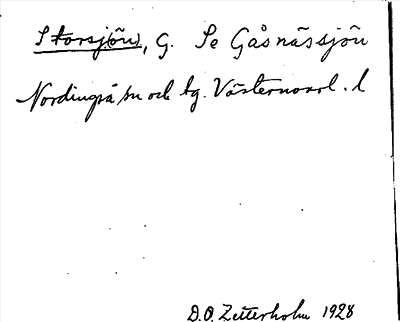 Storsj(ön), G. Se Gåsnässjön
Nordingrå sn och tg. Västernorrl. l
D.O. Zetterholm 1928